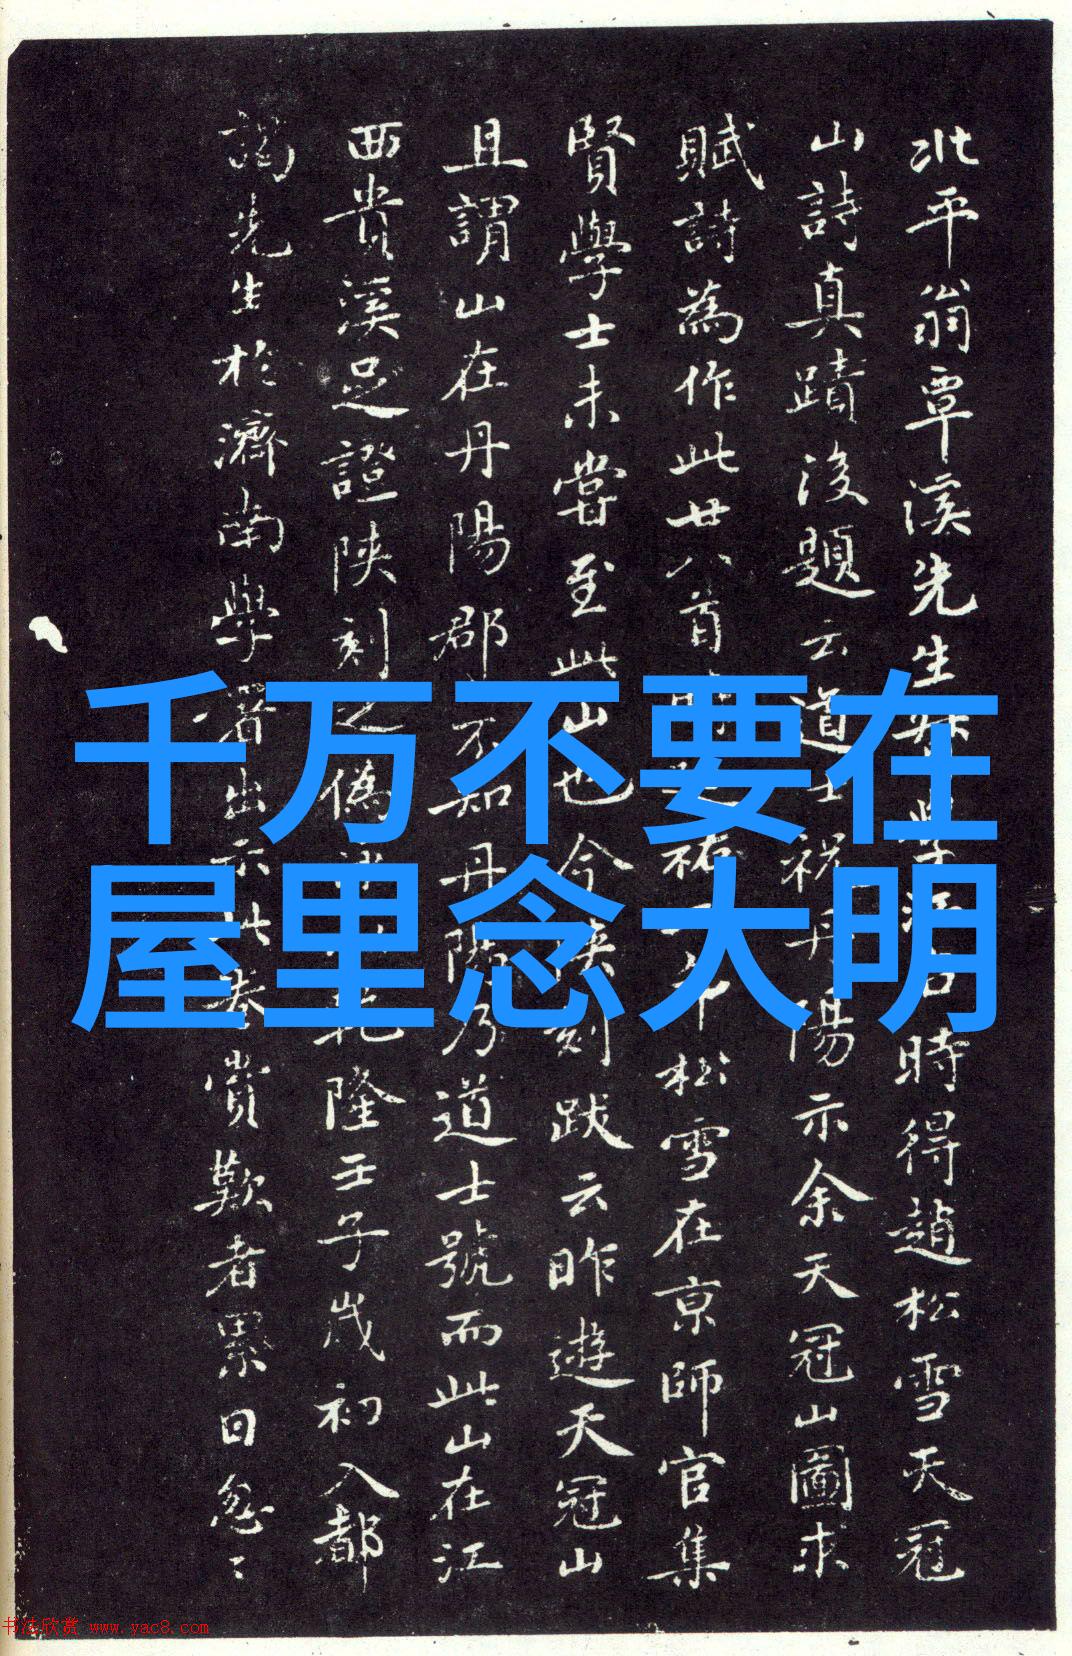 北平翁覃溪先生
時得趙松雪天冠
山詩真蹟後題云道士祝丹陽示余天冠山圖求
賦詩為作此廿八首
松雪在京師官集
賢學士未嘗至此山也今陕刻跋云昨遊天冠山
且謂山在丹陽郡不知丹陽乃道士號而此山在江
西貴溪足證陝刻之偽
乾隆壬子歲初入都
謁先生於濟南學署出示此卷賞歎者累日忽〻
千万不要在
屋里念大明
书法欣赏 www.yac8.com